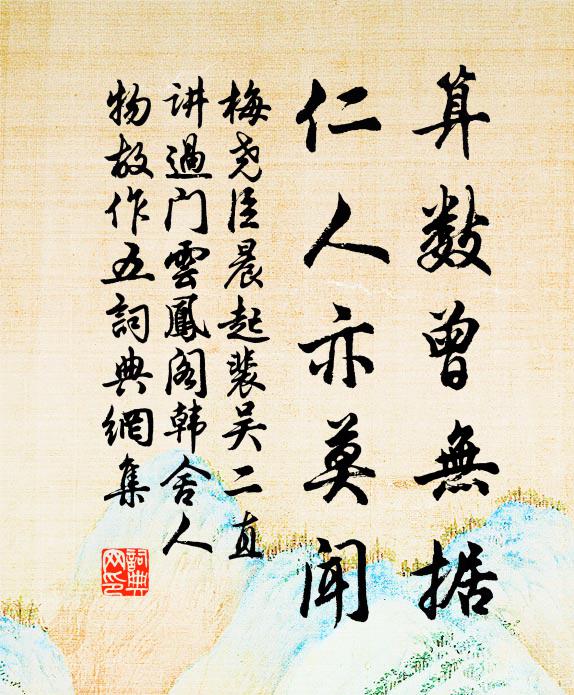 算數曾無据
仁人亦莫聞
梅尧臣晨起裴吴二直
讲過门雲鳳阁韩舍人
物故作五詞典網集
詞典网印